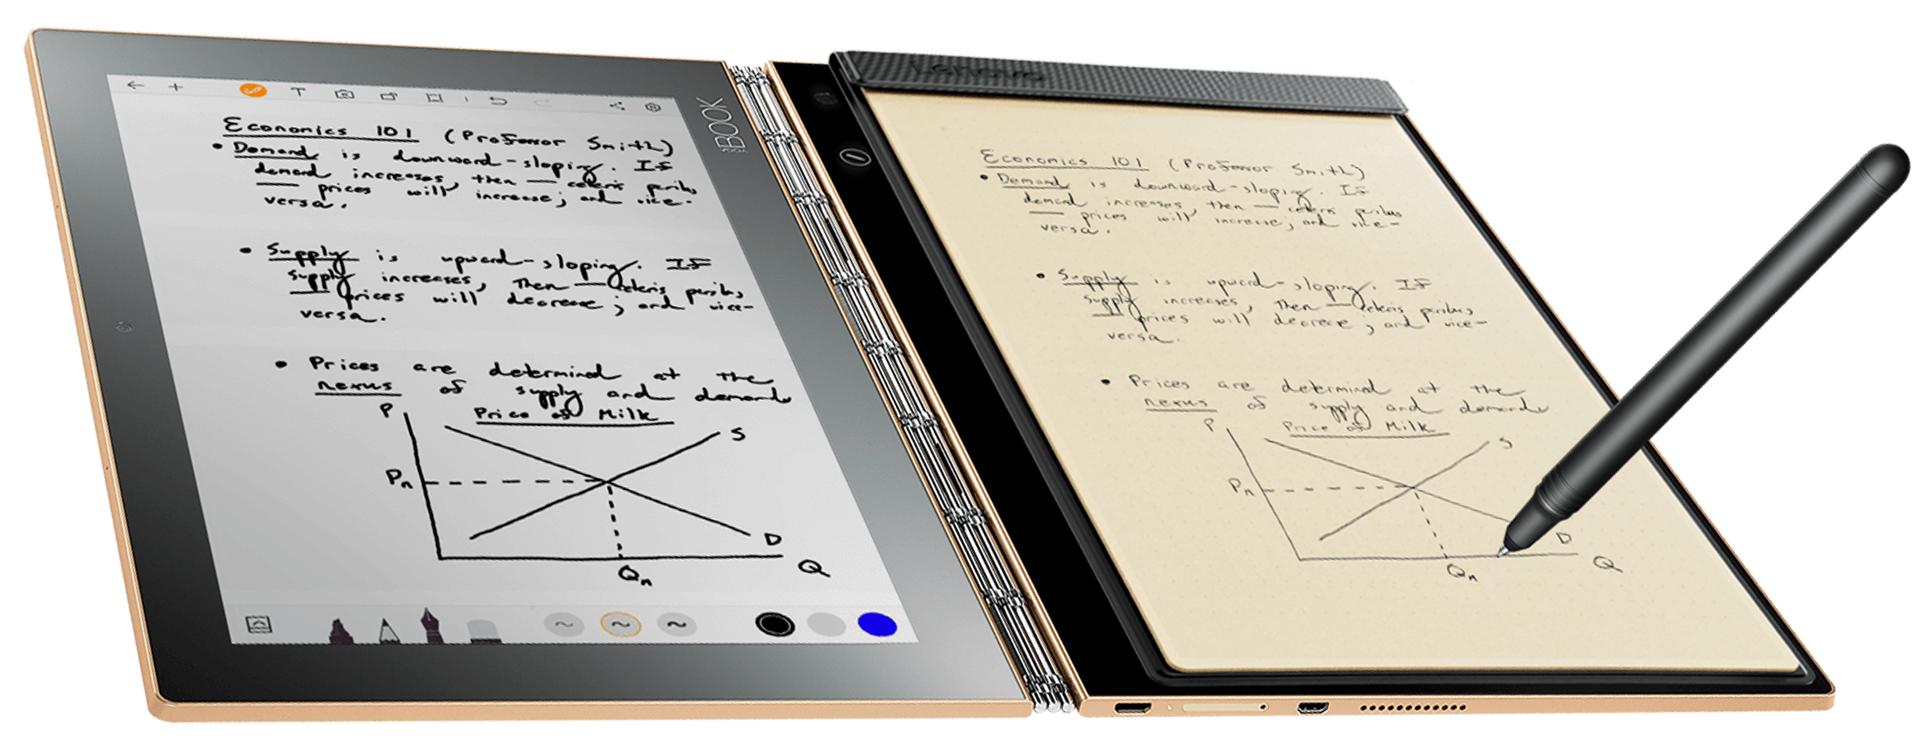 Economics 101 (Professor Smith)
• Demand is downward-sloping. If
demand increases, then — ceteris paribus
— prices will increase; and vice-
versa.
• Supply is upward-sloping. If
supply increases, then — ceteris paribus,
— prices will decrease; and vice-
versa.
• Prices are determined at the
nexus of supply and demand
Price of Milk
P
S
Pn
D
Qn
Q
BOOK
Lenovo
Economics 101 (Professor Smith)
• Demand is downward-sloping. If
demand increases, then — ceteris paribus
— prices will increase; and vice-
versa.
• Supply is upward-sloping. If
supply increases, then — ceteris paribus,
— prices will decrease; and vice-
versa.
• Prices are determined at the
nexus of supply and demand
Price of Milk
P
S
Pn
D
Qn
Q